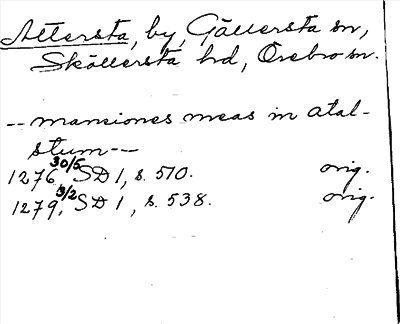 Attersta, by, Gällersta sn,
Sköllersta hd, Örebro sn.
-- mansiones meas in atal-
stum --
1276 30/5, SD 1, s. 510. orig.
1279, 3/2 SD 1, s. 538. orig.